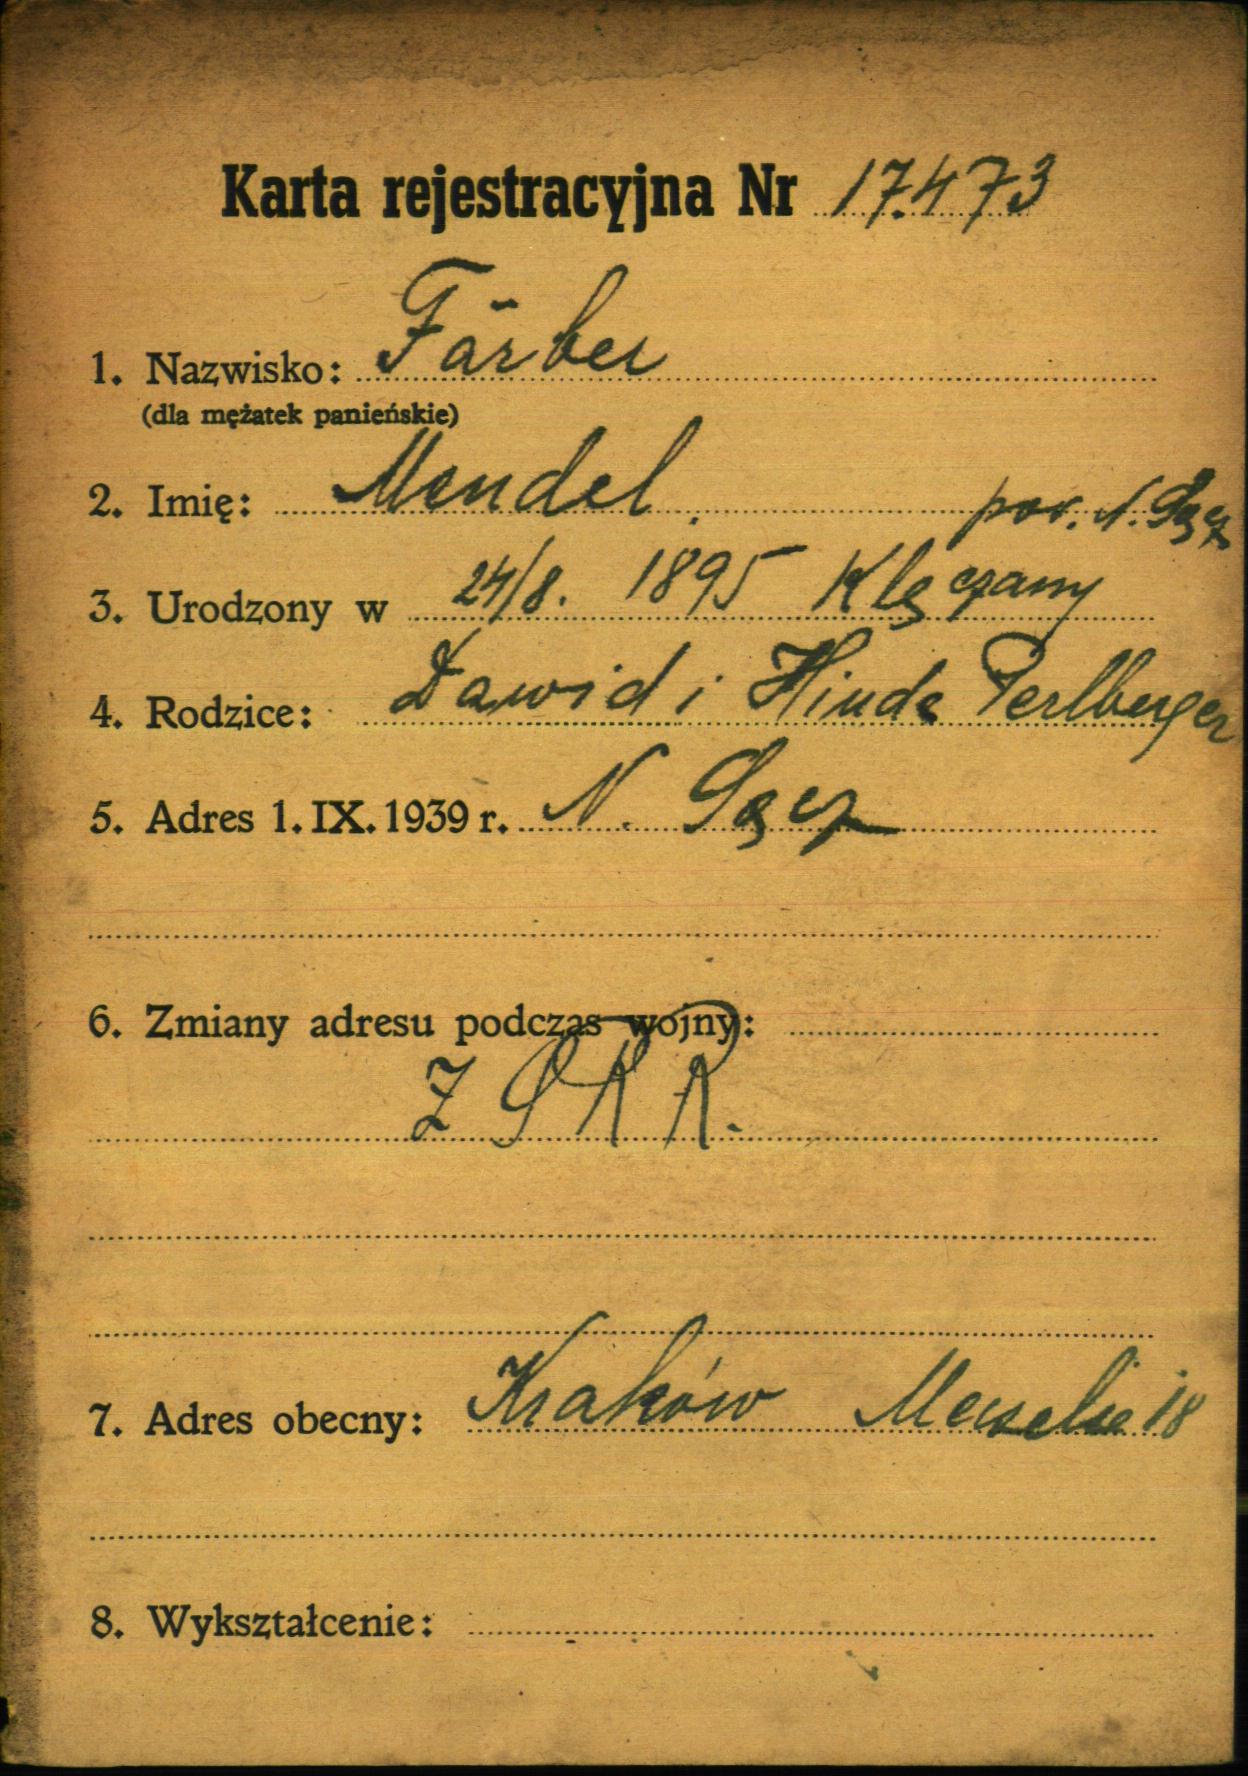 Karta rejestracyjna Nr 17.473
1. Nazwisko: Färber
(dla mężatek panieńskie)
2. Imię: Mendel
pow. N. Sącz
3. Urodzony w 24/8. 1895 Klęczany
4. Rodzice: Dawid i Hinda Perlberger
5. Adres 1. IX. 1939 r. N. Sącz
6. Zmiany adresu podczas wojny:
Z S R R.
7. Adres obecny: Kraków 18
8. Wykształcenie: